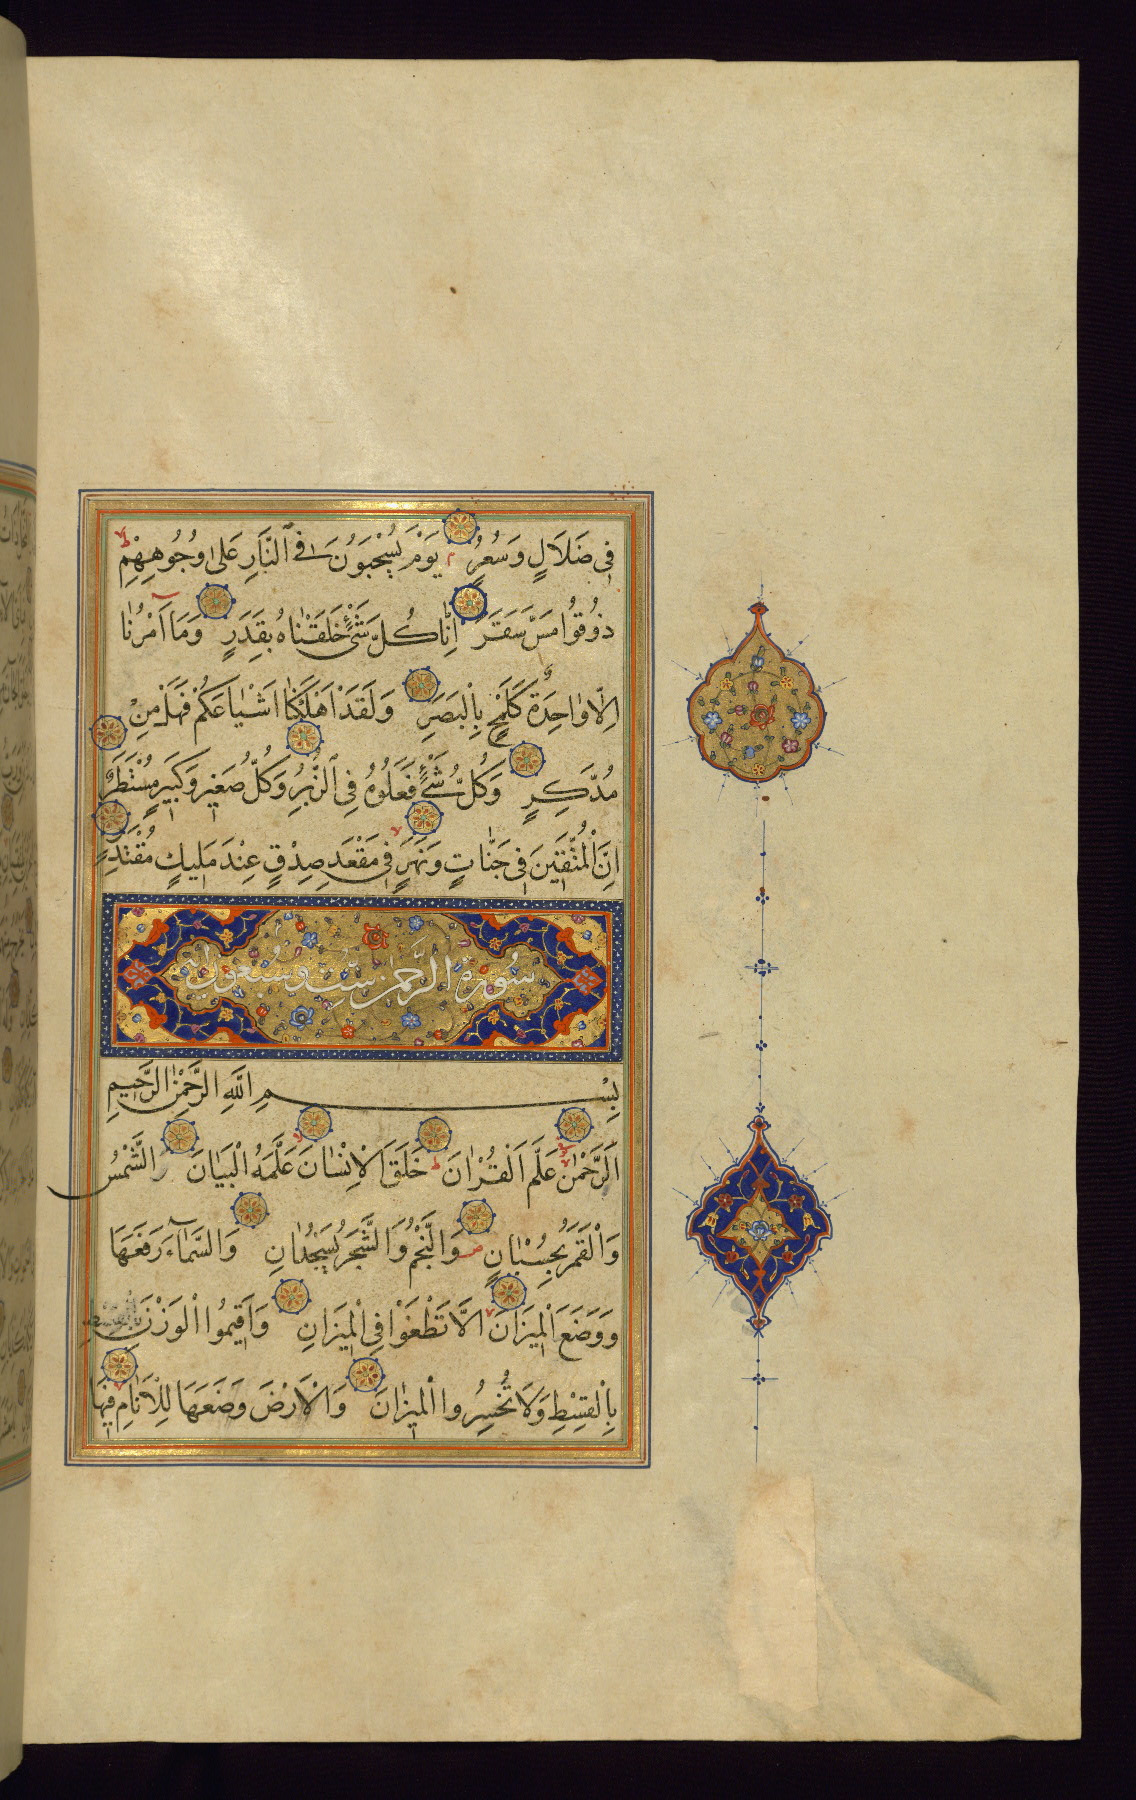 فِي ضَلَالٍ وَسُعُرٍ يَوْمَ يُسْحَبُونَ فِي ٱلنَّارِ عَلىٰ وُجُوهِهِمْ
ذُوقُوا مَسَّ سَقَرَ اِنَّا كُلَّ شَيْءٍ خَلَقْنَاهُ بِقَدَرٍ وَمَا اَمْرُنَا
اِلَّا وَاحِدَةٌ كَلَمْحٍ بِالْبَصَرِ وَلَقَدْ اَهْلَكْنَا اَشْيَاعَكُمْ فَهَلْ مِنْ
مُدَّكِرٍ وَكُلُّ شَيْءٍ فَعَلُوهُ فِي ٱلزُّبُرِ وَكُلُّ صَغِيرٍ وَكَبِيرٍ مُسْتَطَرٌ
اِنَّ الْمُتَّقِينَ فِي جَنَّاتٍ وَنَهَرٍ فِي مَقْعَدِ صِدْقٍ عِنْدَ مَلِيكٍ مُقْتَدِرٍ
سورة الرحمن ست وسبعون اٰية
بِسْمِ اللّٰهِ الرَّحْمٰنِ الرَّحِيمِ
اَلرَّحْمٰنُ عَلَّمَ الْقُرْاٰنَ خَلَقَ الْاِنْسَانَ عَلَّمَهُ الْبَيَانَ الشَّمْسُ
وَالْقَمَرُ بِحُسْبَانٍ وَالنَّجْمُ وَالشَّجَرُ يَسْجُدَانِ وَالسَّمَاءَ رَفَعَهَا
وَوَضَعَ الْمِيزَانَ اَلَّا تَطْغَوْا فِي الْمِيزَانِ وَاَقِيمُوا الْوَزْنَ
بِالْقِسْطِ وَلَا تُخْسِرُوا الْمِيزَانَ وَالْاَرْضَ وَضَعَهَا لِلْاَنَامِ فِيهَا